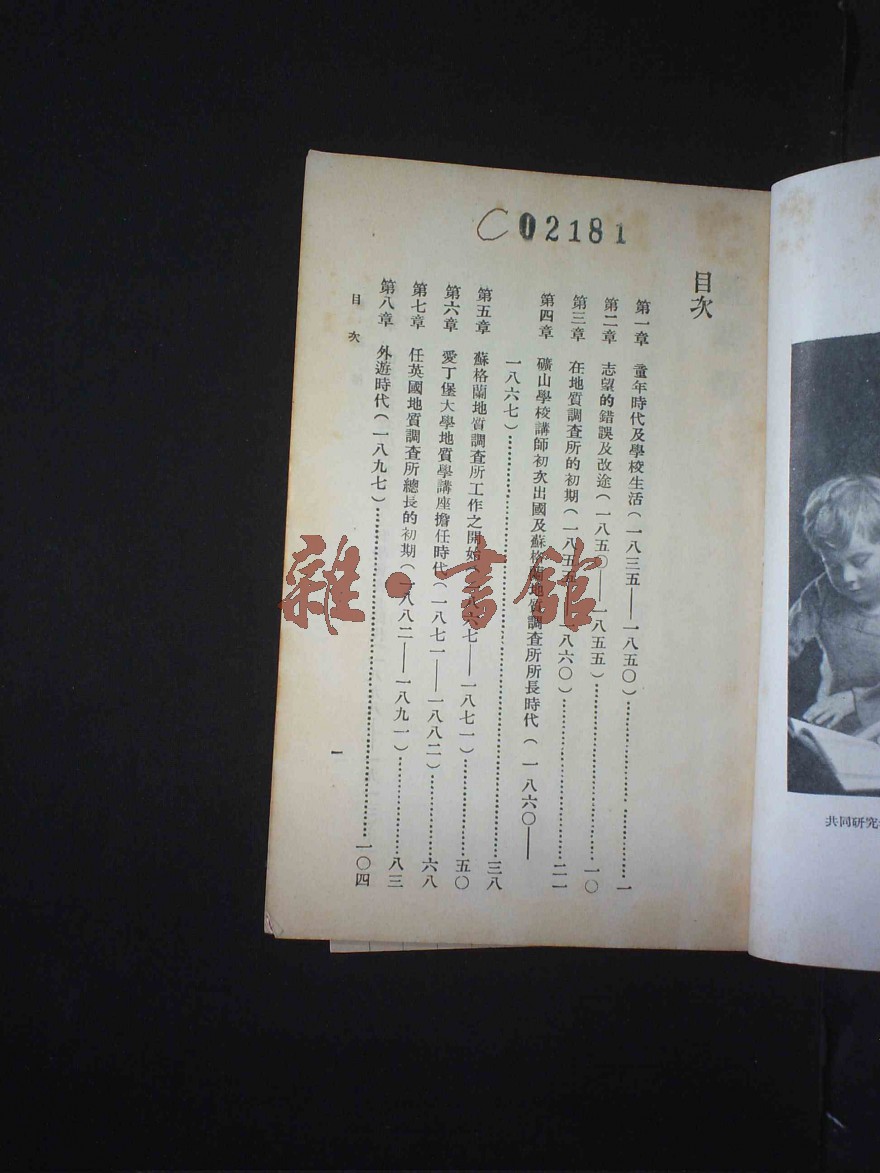 C02181
目次
第一章 童年時代及學校生活(一八三五——一八五〇)……一
第二章 志望的錯誤及改途(一八五〇——一八五五)……一〇
第三章 在地質調查所的初期(一八五五——一八六〇)……二一
第四章 礦山學校講師初次出國及蘇格蘭地質調查所所長時代(一八六〇——
一八六七)……三八
第五章 蘇格蘭地質調查所工作之開始(一八六七——一八七一)……五〇
第六章 愛丁堡大學地質學講座擔任時代(一八七一——一八八二)……六八
第七章 任英國地質調查所總長的初期(一八八二——一八九一)……八三
第八章 外遊時代(一八九七)……一〇四
目次
一
雜·書館
共同研究